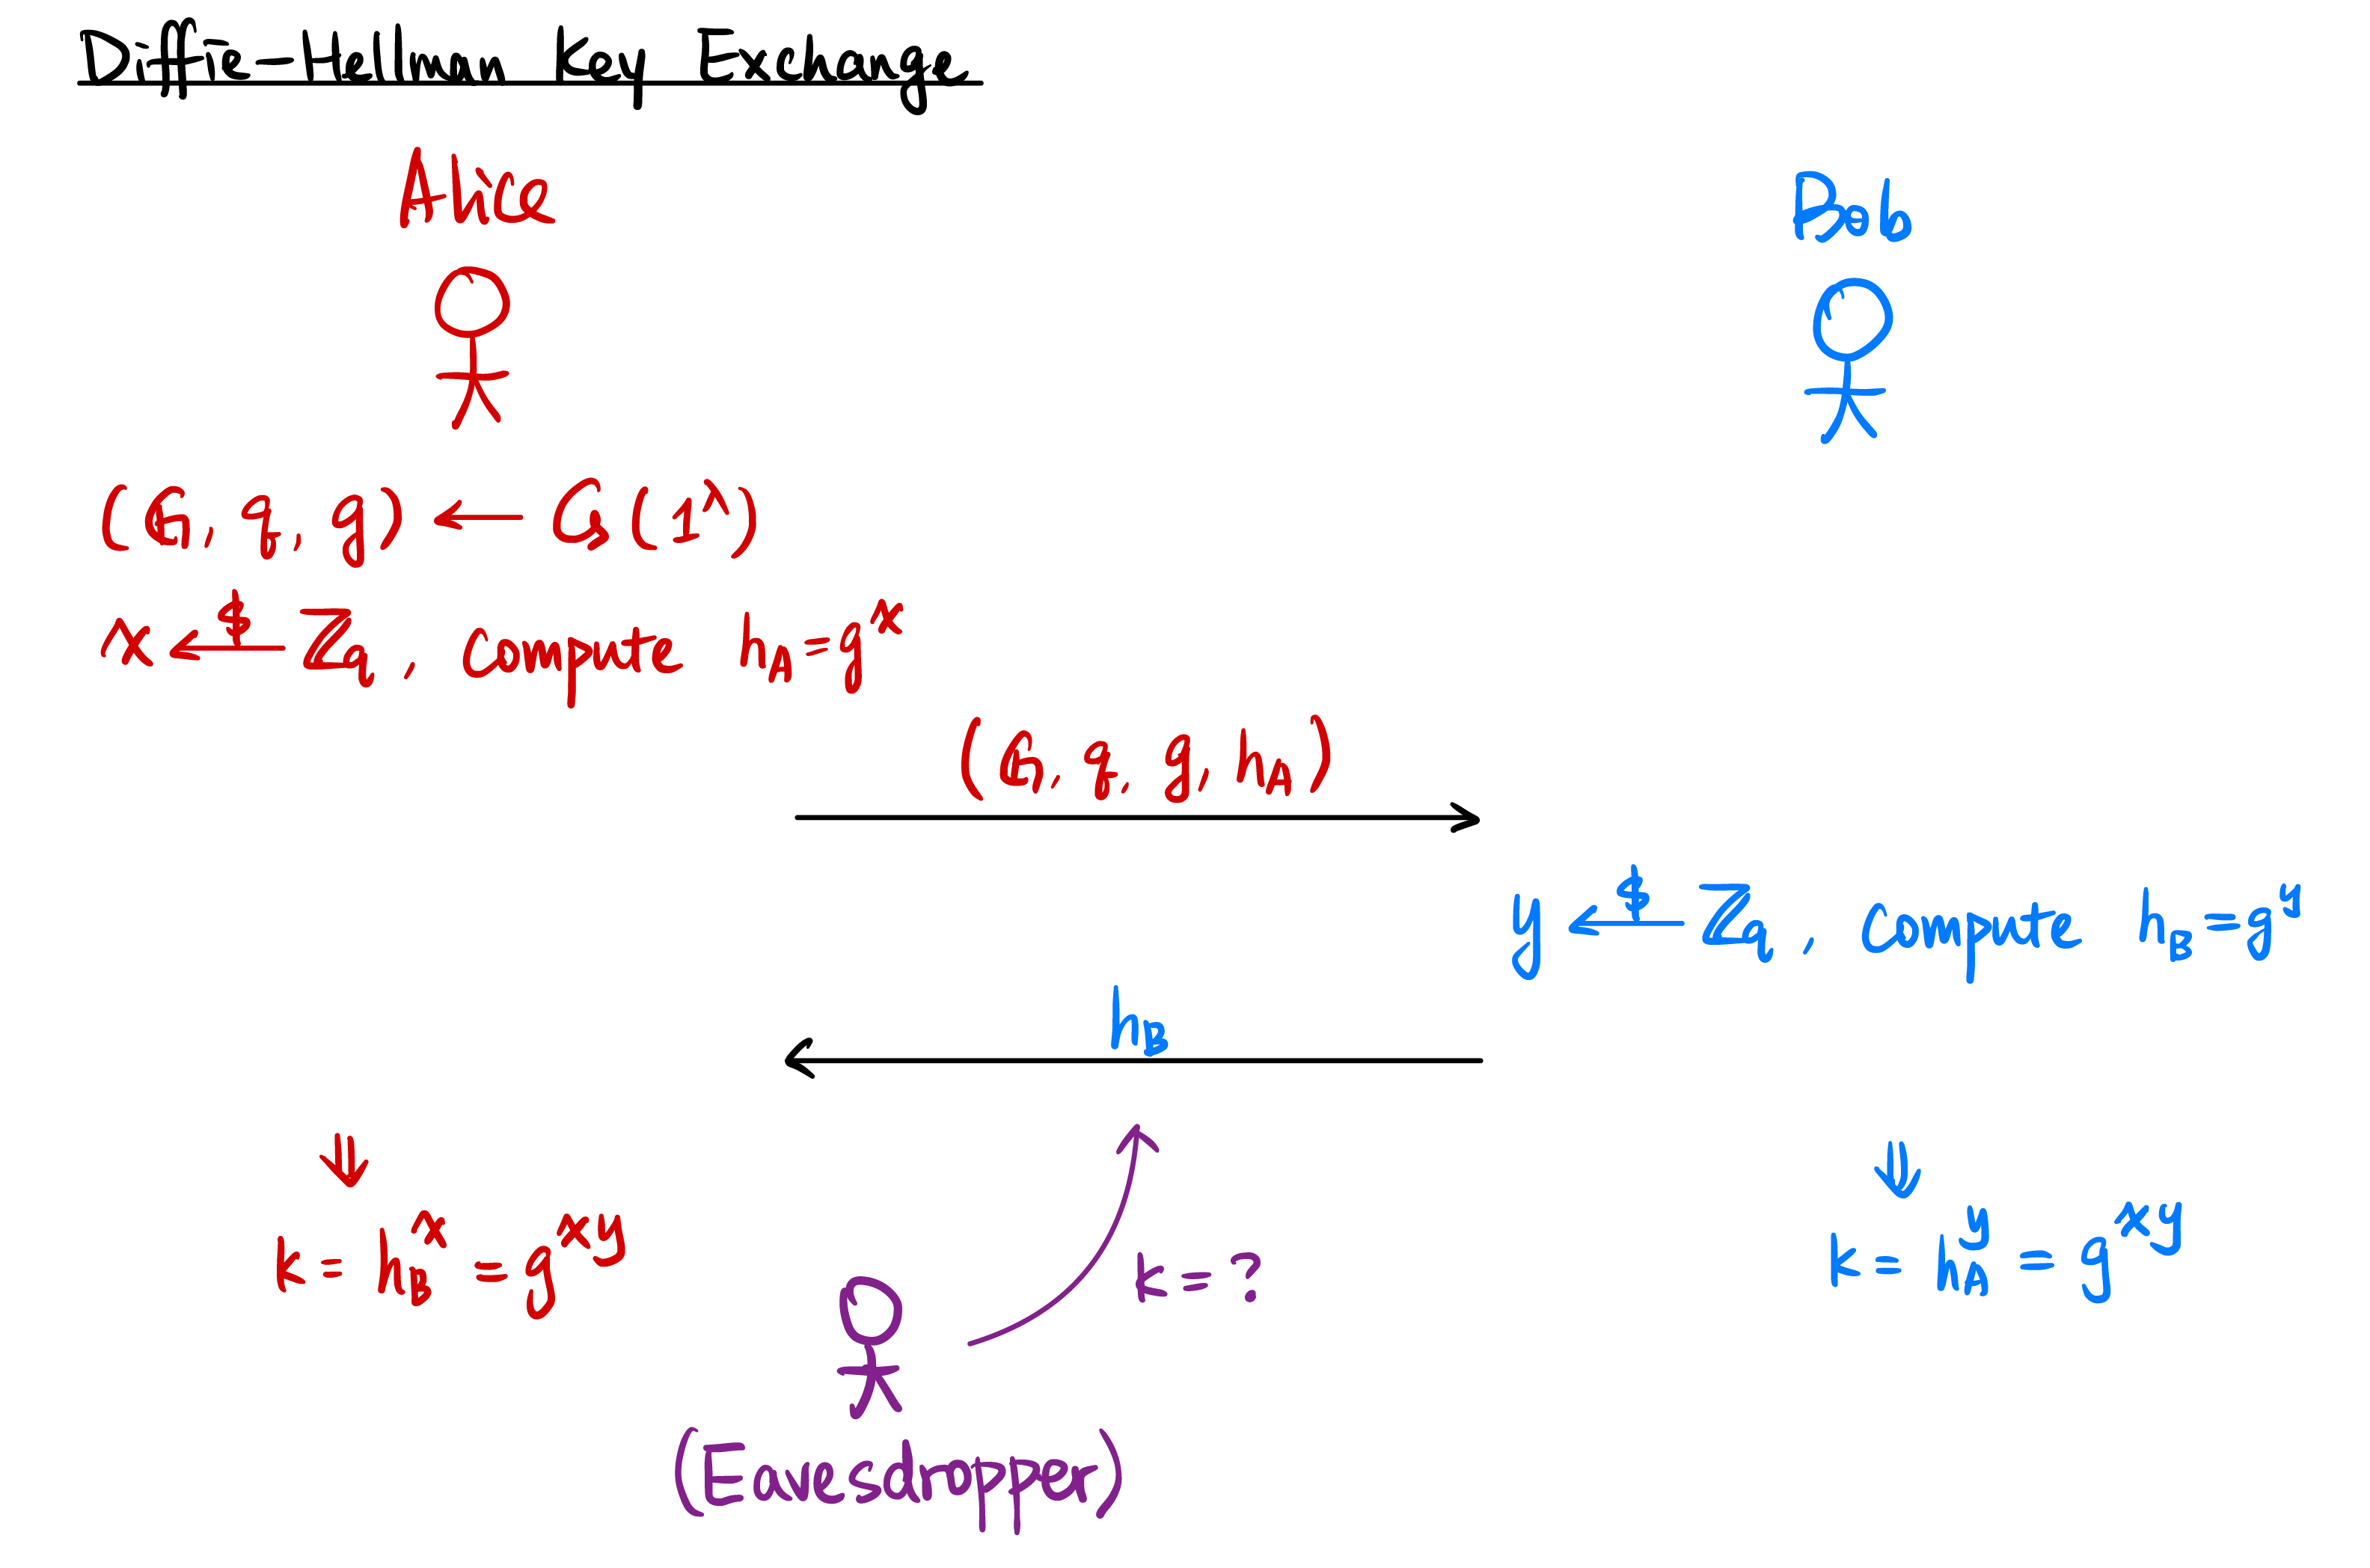 Diffie-Hellman Key Exchange
Alice
Bob
(𝔾, q, g) ← G(1^λ)
x ←$ ℤ_q, compute h_A = g^x
(𝔾, q, g, h_A)
y ←$ ℤ_q, compute h_B = g^y
h_B
⇓
⇓
k = h_B^x = g^xy
k = ?
k = h_A^y = g^xy
(Eavesdropper)